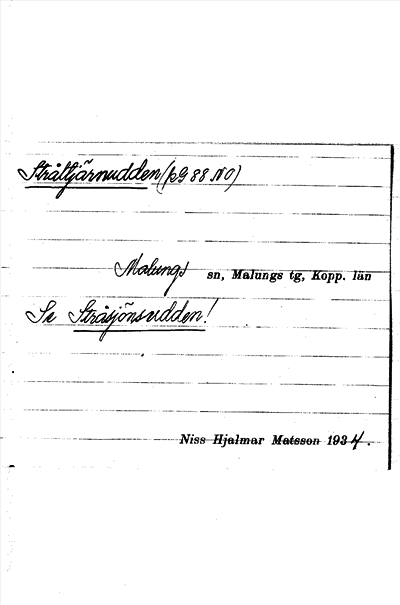 Stråltjärnudden (kG 88 NO)
Malungs sn, Malungs tg, Kopp. län
Se Stråsjönsudden!
Niss Hjalmar Matsson 1934.